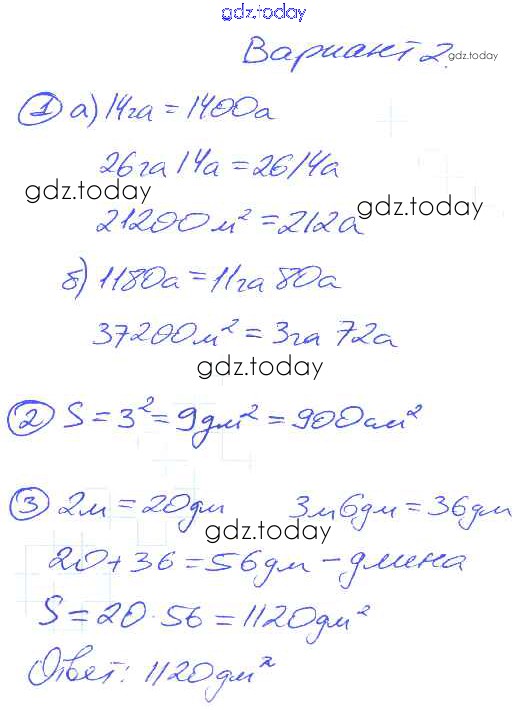 gdz.today
Вариант 2. gdz.today
1 а) 14га = 1400а
26га 14а = 2614а
gdz.today
21200м² = 212а gdz.today
б) 1180а = 11га 80а
37200м² = 3га 72а
gdz.today
2 S = 3² = 9дм² = 900см²
3 2м = 20дм 3м6дм = 36дм
gdz.today
20 + 36 = 56дм – длина
S = 20 · 56 = 1120дм²
Ответ: 1120дм²